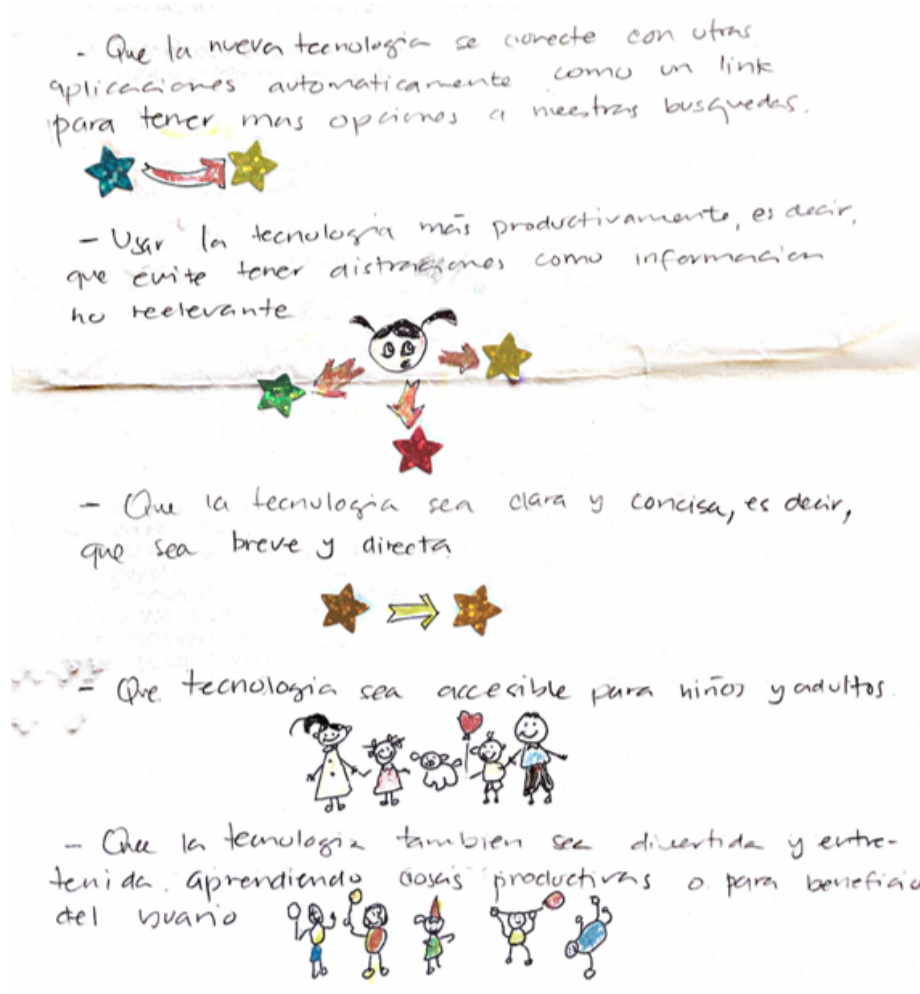 - Que la nueva tecnologia se conecte con otras
aplicaciones automaticamente como un link
para tener mas opciones a nuestras busquedas.
- Usar la tecnología más productivamente, es decir,
que evite tener distraciones como informacion
no reelevante
- Que la tecnologia sea clara y concisa, es decir,
que sea breve y directa
- Que tecnologia sea accesible para niños y adultos.
- Que la tecnologia tambien sea divertida y entre-
tenida. aprendiendo cosas productivas o para beneficio
del usuario